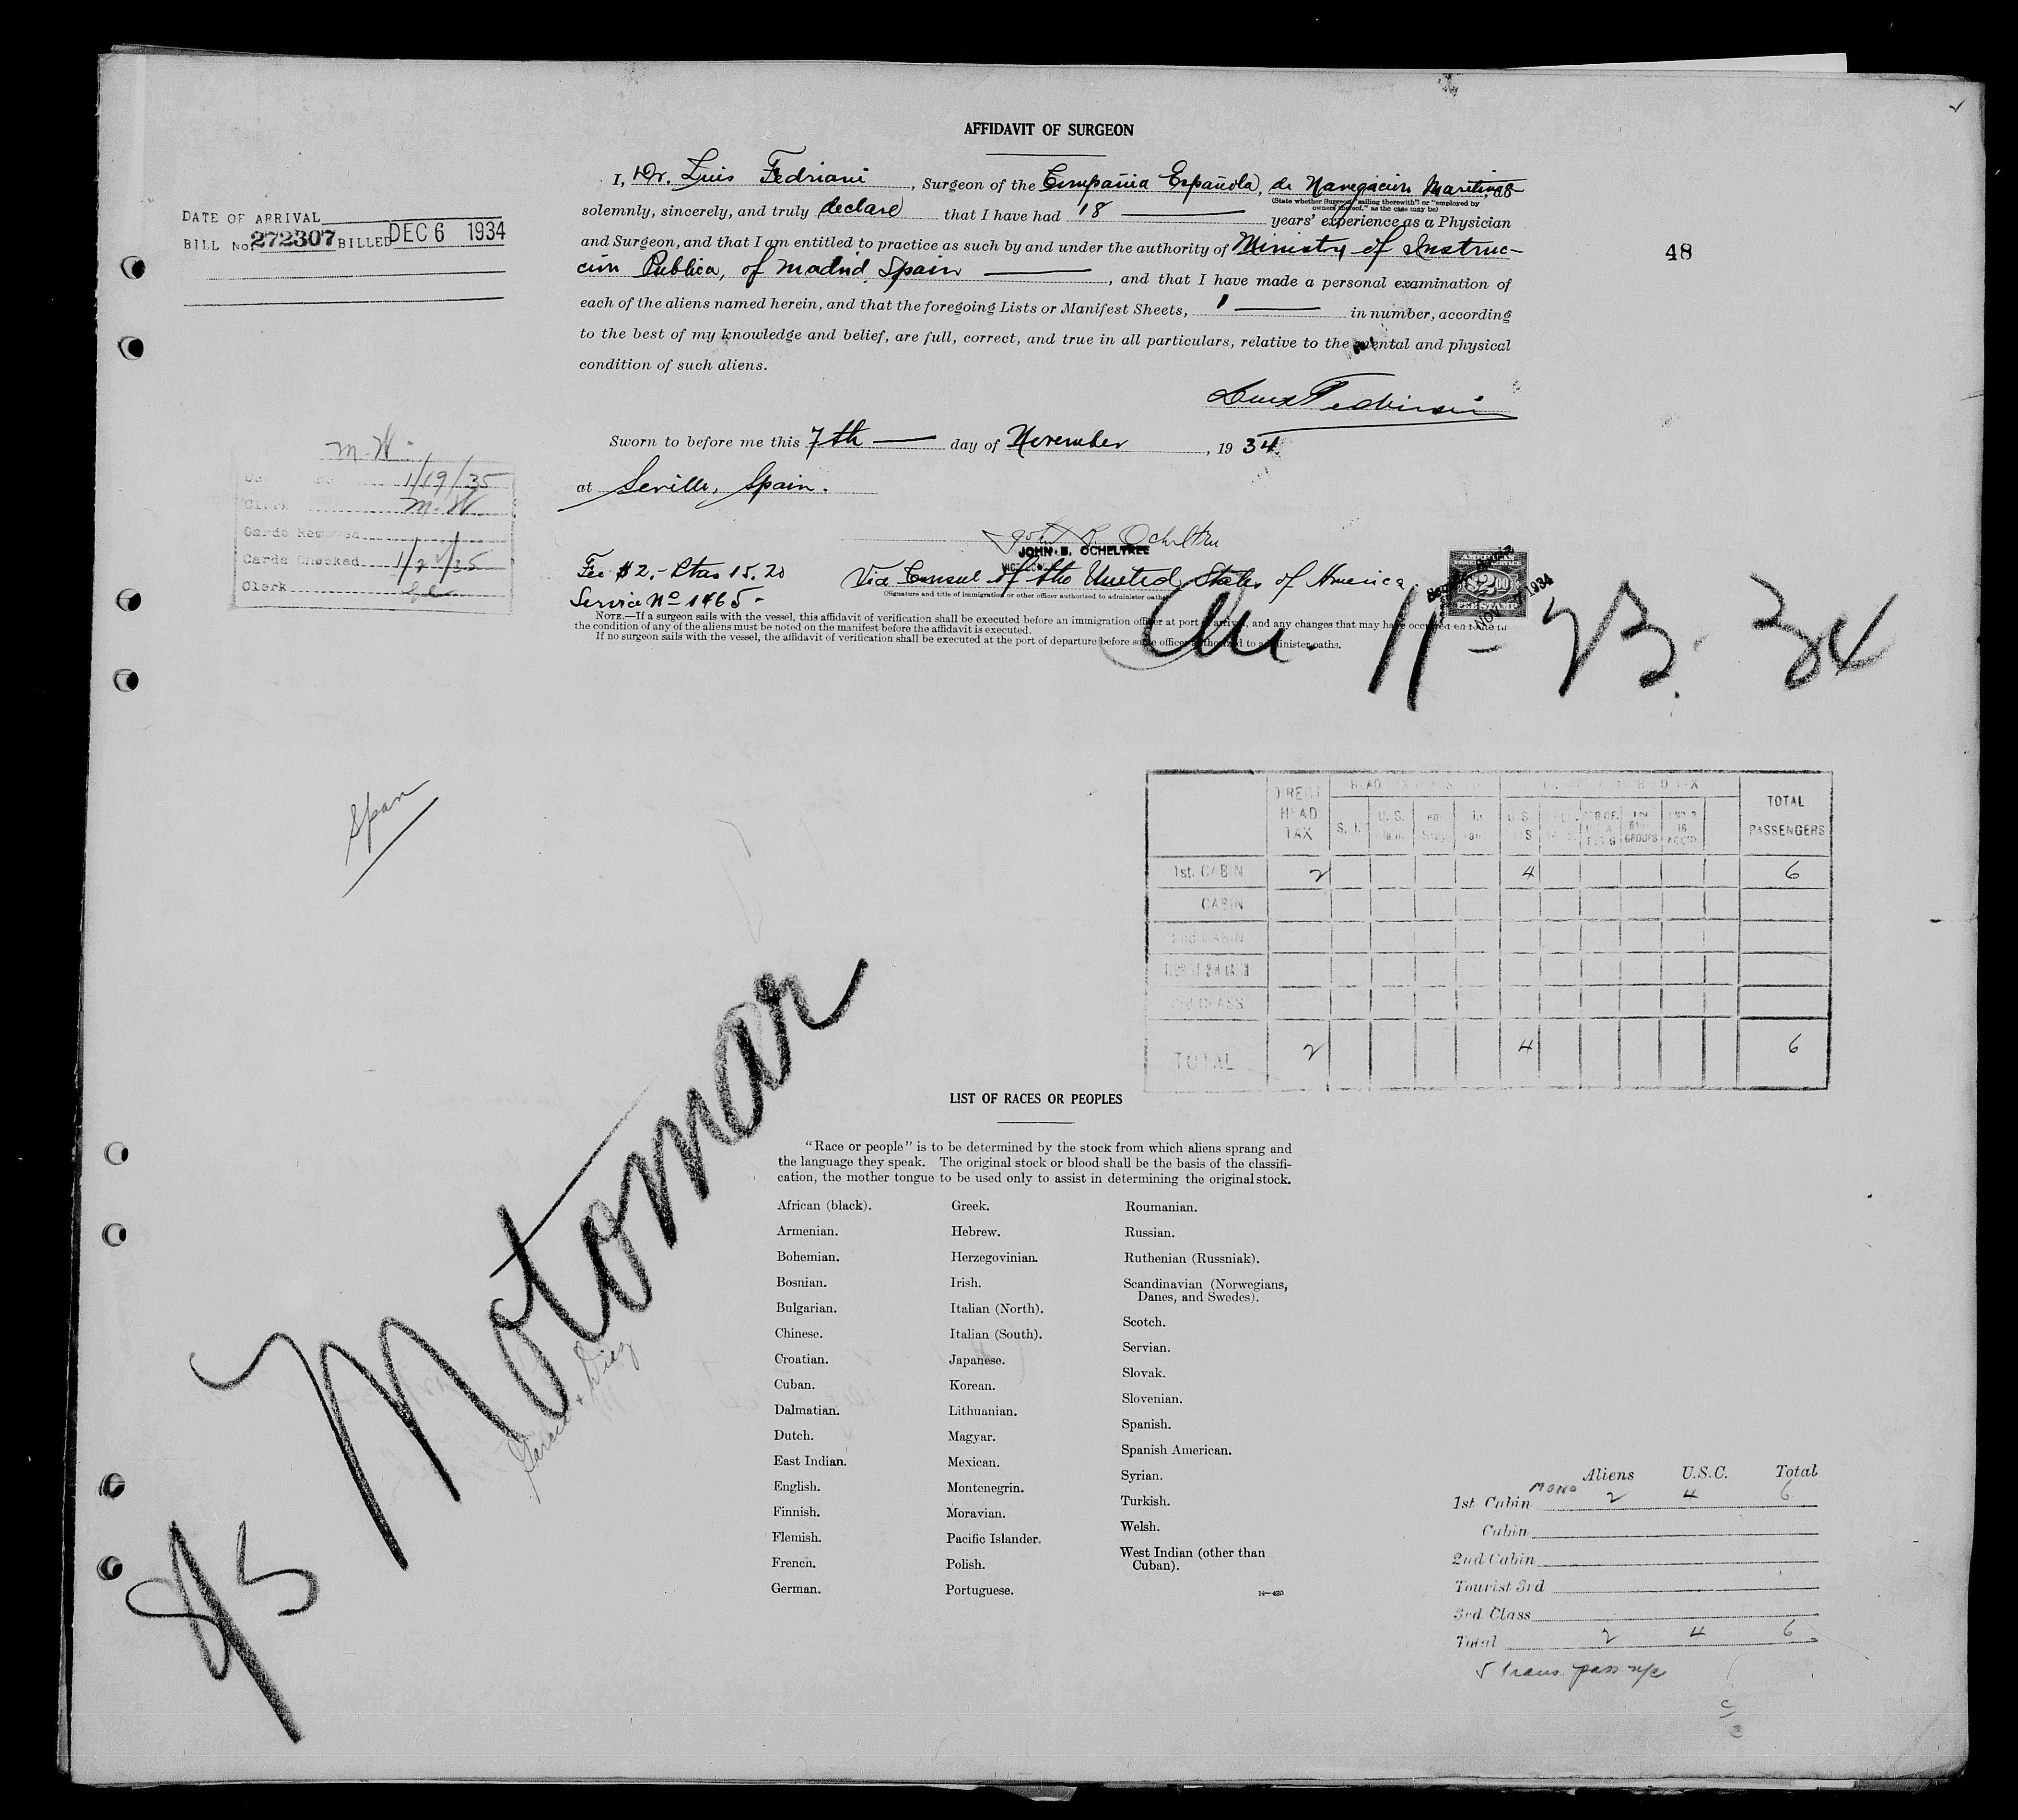 AFFIDAVIT OF SURGEON
I, Dr. Luis Fedriani, Surgeon of the Compañia Española, de Navegación Maritima, do
(State whether Surgeon "sailing therewith" or "employed by owners thereof," as the case may be)
solemnly, sincerely, and truly declare that I have had 18 years' experience as a Physician
and Surgeon, and that I am entitled to practice as such by and under the authority of Ministry of Instruc-
ción Publica, of Madrid, Spain, and that I have made a personal examination of
each of the aliens named herein, and that the foregoing Lists or Manifest Sheets, 1 in number, according
to the best of my knowledge and belief, are full, correct, and true in all particulars, relative to the mental and physical
condition of such aliens.
Luis Fedriani
Sworn to before me this 7th day of November, 1934
at Seville, Spain.
DATE OF ARRIVAL
BILL No. 272307 BILLED DEC 6 1934
48
M.W.
1/19/35
Clerk M.W.
Cards Removed
Cards Checked 1/2/35
Clerk
John B. Ocheltree
JOHN B. OCHELTREE
Fee $2.- Ptas 15.20
Vice Consul of the United States of America.
Service Nº 1465-
(Signature and title of immigration or other officer authorized to administer oaths)
AMERICAN FOREIGN SERVICE
$2.00
FEE STAMP
NOV 7 1934
NOTE.—If a surgeon sails with the vessel, this affidavit of verification shall be executed before an immigration officer at port of arrival, and any changes that may have occurred en route in
the condition of any of the aliens must be noted on the manifest before the affidavit is executed.
If no surgeon sails with the vessel, the affidavit of verification shall be executed at the port of departure before some officer authorized to administer oaths.
11-23-34
Span
DIRECT HEAD TAX
S. I.
U. S.
TOTAL PASSENGERS
1st. CABIN 2 4 6
CABIN
2nd CABIN
TOURIST 3rd CABIN
3rd CLASS
TOTAL 2 4 6
M/S Motomar
Garcia & Diaz
LIST OF RACES OR PEOPLES
"Race or people" is to be determined by the stock from which aliens sprang and
the language they speak. The original stock or blood shall be the basis of the classifi-
cation, the mother tongue to be used only to assist in determining the original stock.
African (black).
Armenian.
Bohemian.
Bosnian.
Bulgarian.
Chinese.
Croatian.
Cuban.
Dalmatian.
Dutch.
East Indian.
English.
Finnish.
Flemish.
French.
German.
Greek.
Hebrew.
Herzegovinian.
Irish.
Italian (North).
Italian (South).
Japanese.
Korean.
Lithuanian.
Magyar.
Mexican.
Montenegrin.
Moravian.
Pacific Islander.
Polish.
Portuguese.
Roumanian.
Russian.
Ruthenian (Russniak).
Scandinavian (Norwegians,
Danes, and Swedes).
Scotch.
Servian.
Slovak.
Slovenian.
Spanish.
Spanish American.
Syrian.
Turkish.
Welsh.
West Indian (other than
Cuban).
Aliens U.S.C. Total
1st Cabin MONO 2 4 6
Cabin
2nd Cabin
Tourist 3rd
3rd Class
Total 2 4 6
5 trans pass